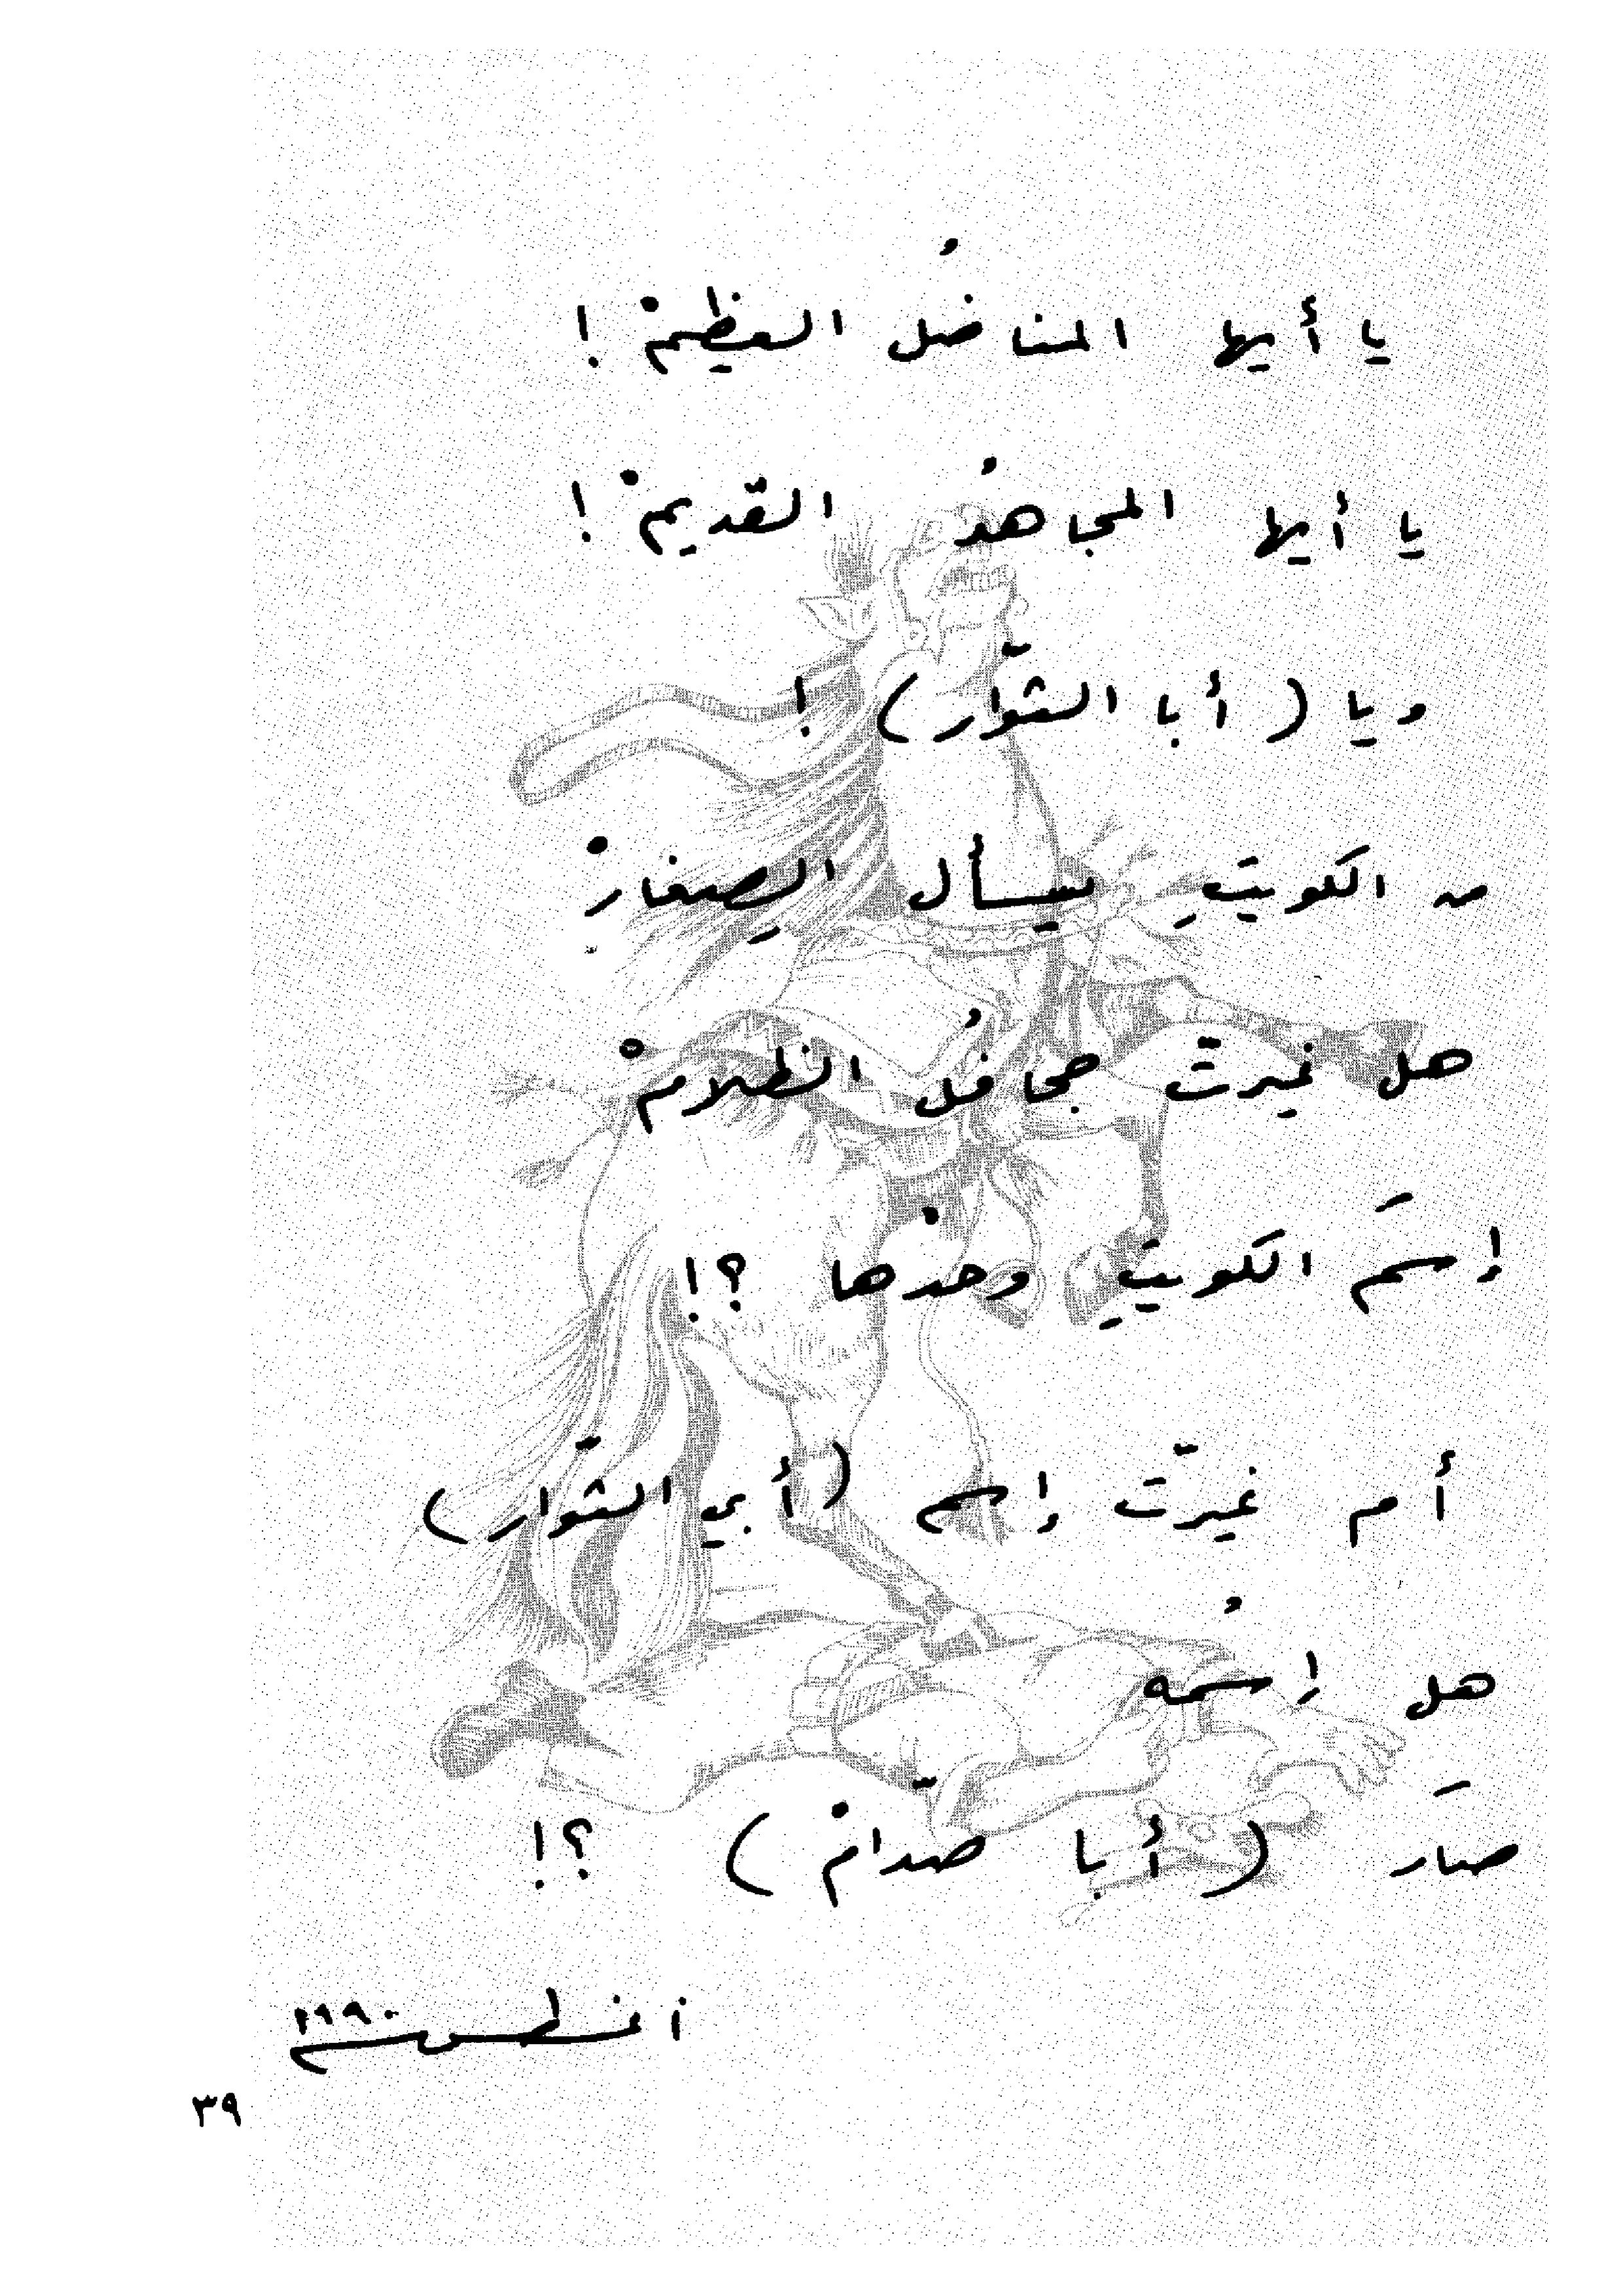 يا أيها المناضلُ العظيمْ !
يا أيها المجاهدُ القديمْ !
ويا ( أبا الثوّار ) !
من الكويتِ يسأل الصِغارْ
هل غيرتّ جحافلُ الظلامْ
إسمَ الكويتِ وحدْها ؟!
أم غيرّت إسم ( أبي الثوّار )
هل إسمُه
صارَ ( أبا صدّامْ ) ؟!
أغسطس ١٩٩٠
٣٩